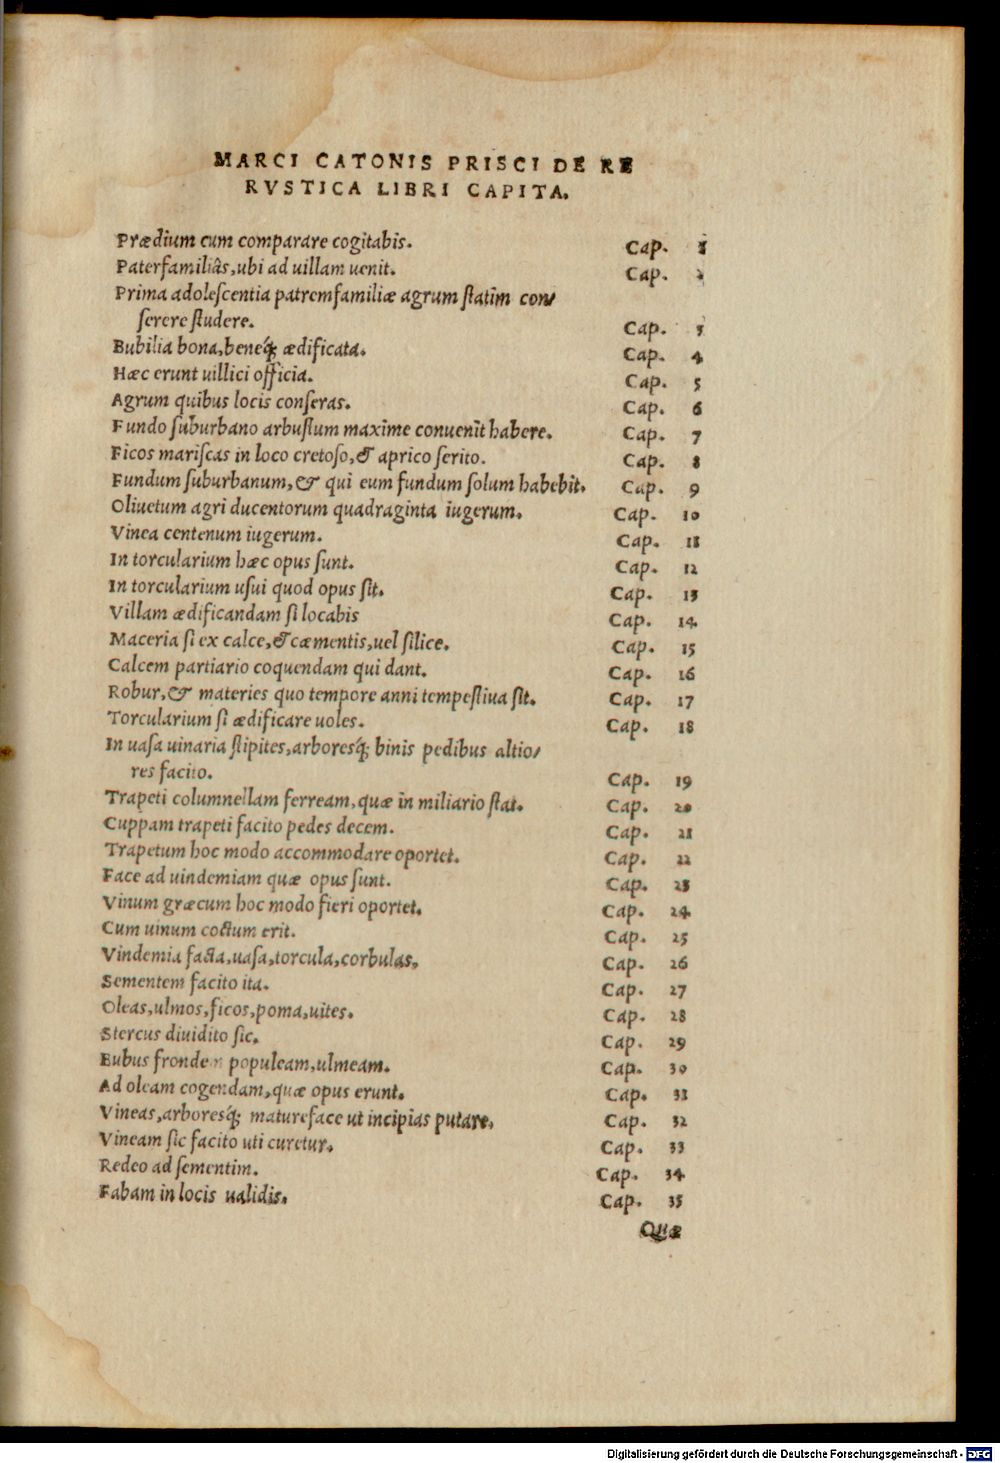 MARCI CATONIS PRISCI DE RE
RVSTICA LIBRI CAPITA.
Prædium cum comparare cogitabis. Cap. 1
Paterfamiliâs, ubi ad uillam uenit. Cap. 2
Prima adolescentia patremfamiliæ agrum statim con/
serere studere. Cap. 3
Bubilia bona, beneq́; ædificata. Cap. 4
Hæc erunt uillici officia. Cap. 5
Agrum quibus locis conseras. Cap. 6
Fundo suburbano arbustum maxime conuenit habere. Cap. 7
Ficos mariscas in loco cretoso, & aprico serito. Cap. 8
Fundum suburbanum, & qui eum fundum solum habebit. Cap. 9
Oliuetum agri ducentorum quadraginta iugerum. Cap. 10
Vinea centenum iugerum. Cap. 11
In torcularium hæc opus sunt. Cap. 12
In torcularium usui quod opus sit. Cap. 13
Villam ædificandam si locabis Cap. 14
Maceria si ex calce, & cæmentis, uel silice. Cap. 15
Calcem partiario coquendam qui dant. Cap. 16
Robur, & materies quo tempore anni tempestiua sit. Cap. 17
Torcularium si ædificare uoles. Cap. 18
In uasa uinaria stipites, arboresq́; binis pedibus altio/
res facito. Cap. 19
Trapeti columnellam ferream, quæ in miliario stat. Cap. 20
Cuppam trapeti facito pedes decem. Cap. 21
Trapetum hoc modo accommodare oportet. Cap. 22
Face ad uindemiam quæ opus sunt. Cap. 23
Vinum græcum hoc modo fieri oportet. Cap. 24
Cum uinum coctum erit. Cap. 25
Vindemia facta, uasa, torcula, corbulas. Cap. 26
Sementem facito ita. Cap. 27
Oleas, ulmos, ficos, poma, uites. Cap. 28
Stercus diuidito sic. Cap. 29
Bubus frondem populeam, ulmeam. Cap. 30
Ad oleam cogendam, quæ opus erunt. Cap. 31
Vineas, arboresq́; mature face ut incipias putare. Cap. 32
Vineam sic facito uti curetur. Cap. 33
Redeo ad sementim. Cap. 34
Fabam in locis ualidis. Cap. 35
Quæ
Digitalisierung gefördert durch die Deutsche Forschungsgemeinschaft - DFG